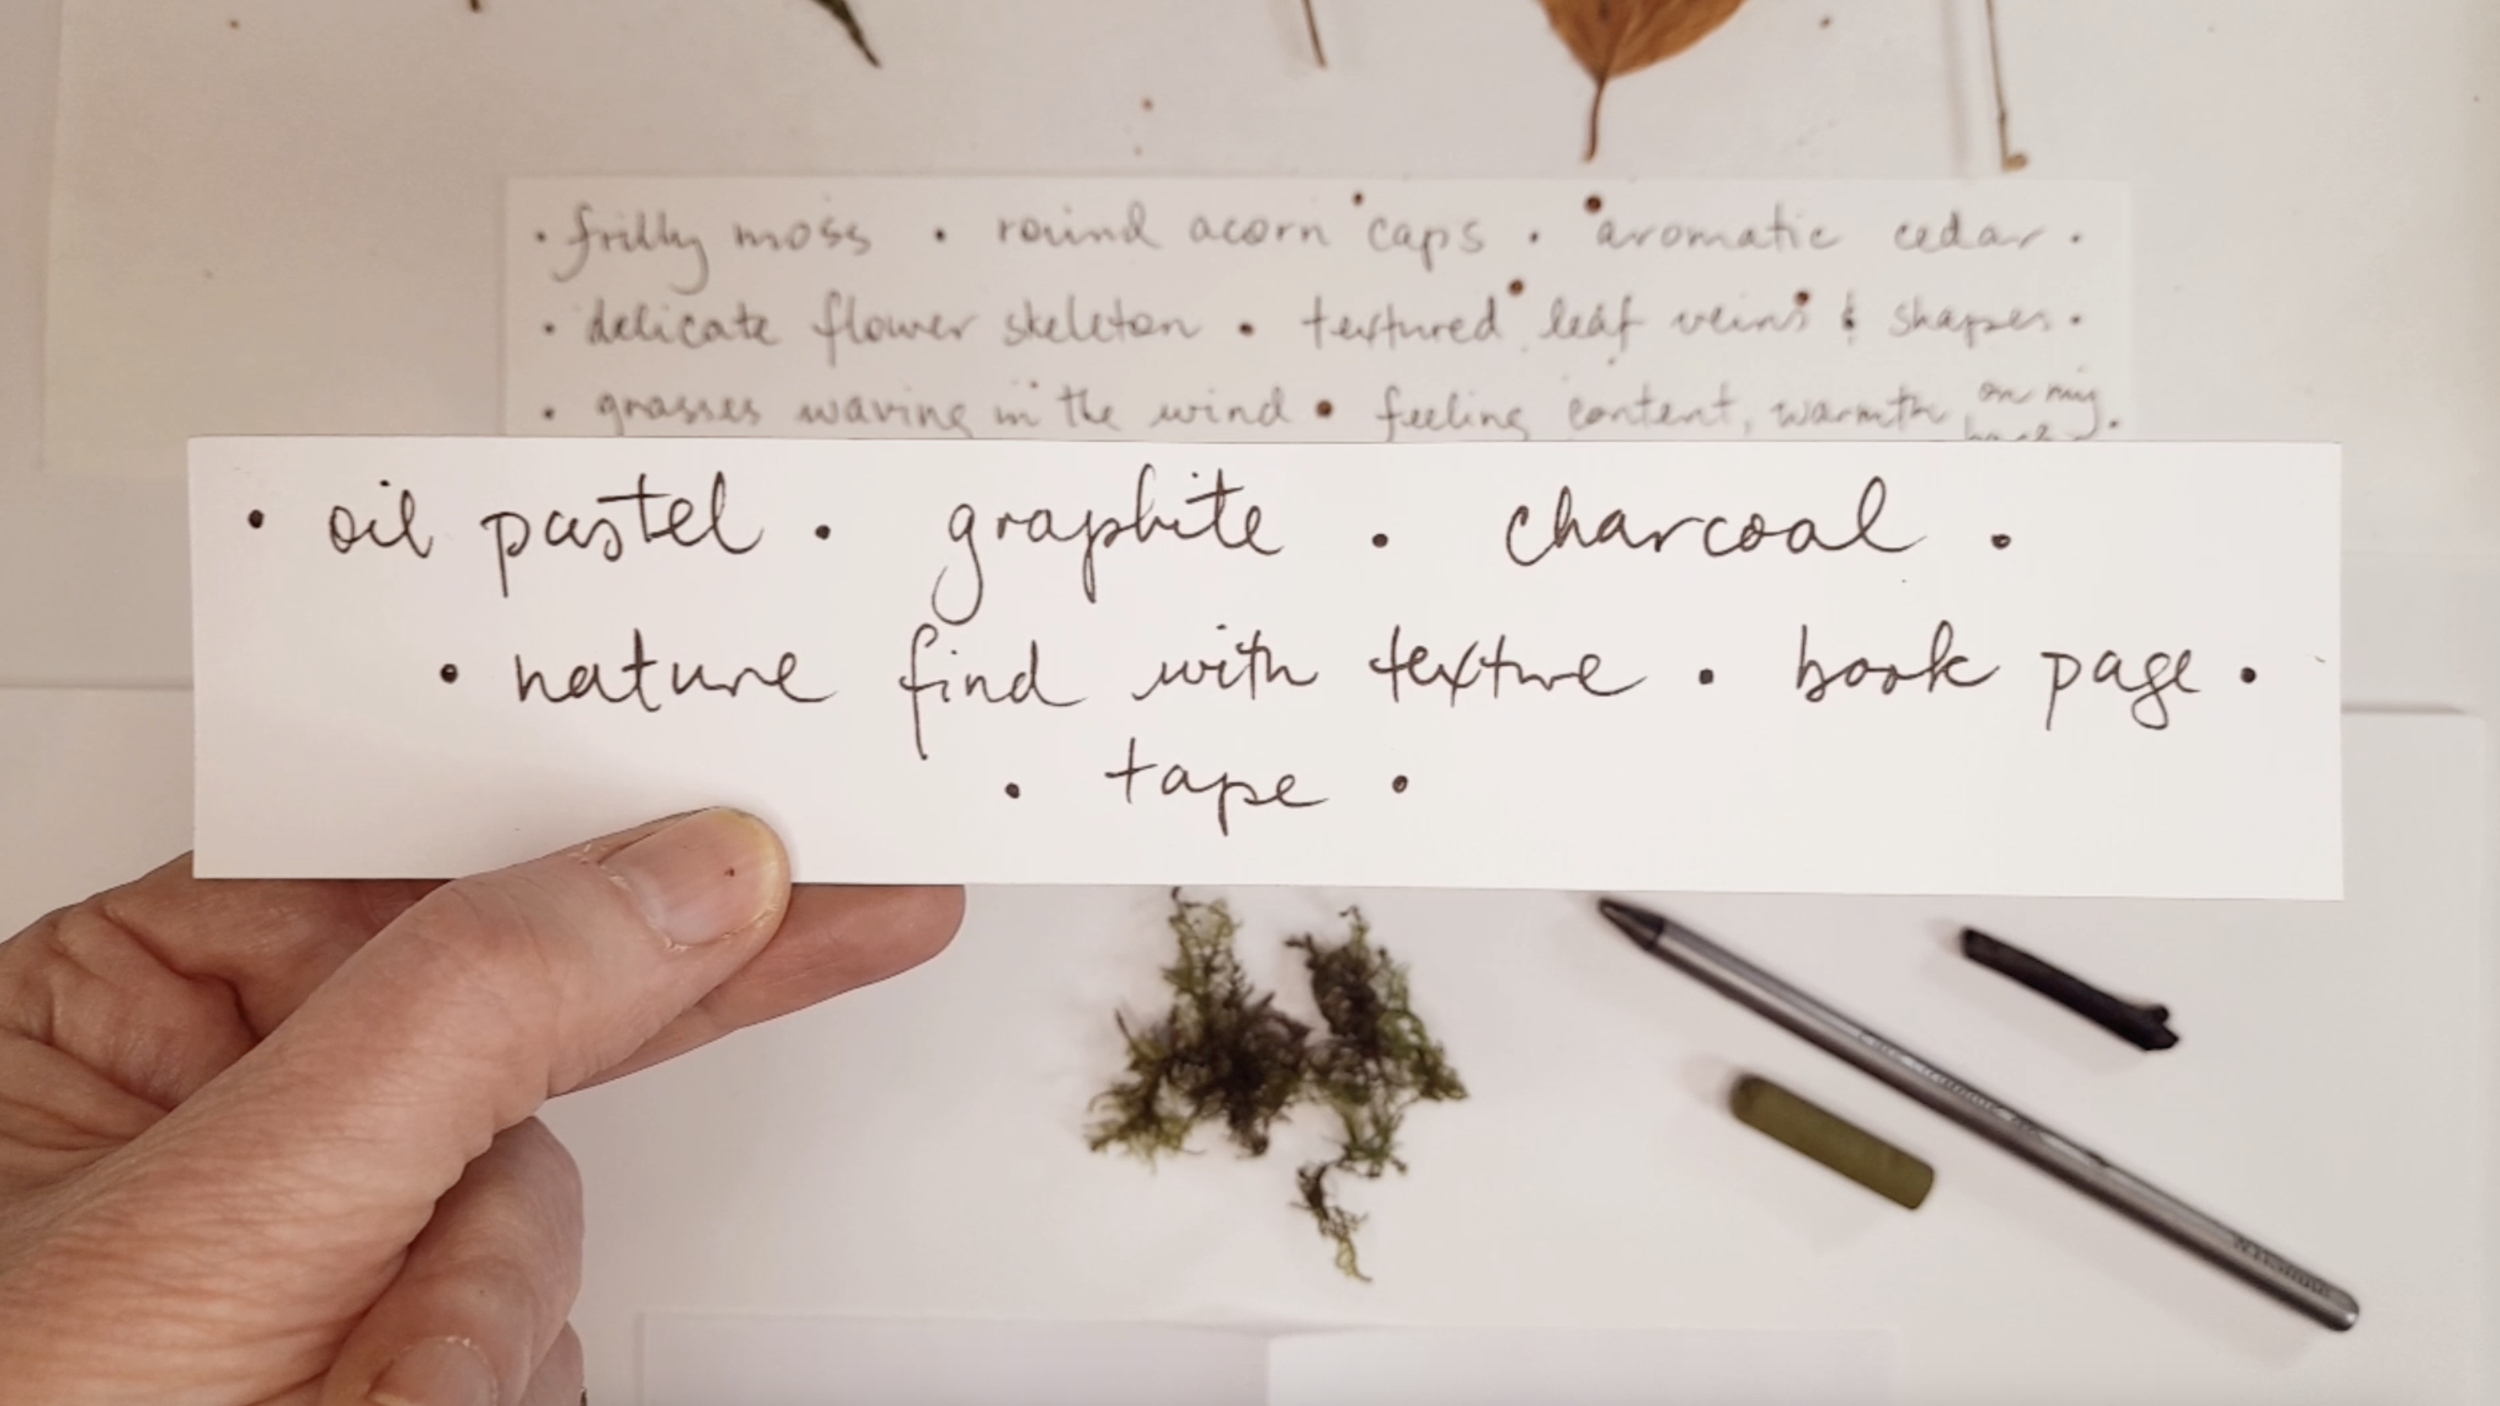 • frilly moss • round acorn caps • aromatic cedar •
• delicate flower skeleton • textured leaf veins & shapes •
• grasses waving in the wind • feeling content, warmth on my
• oil pastel • graphite • charcoal •
• nature find with texture • book page •
• tape •